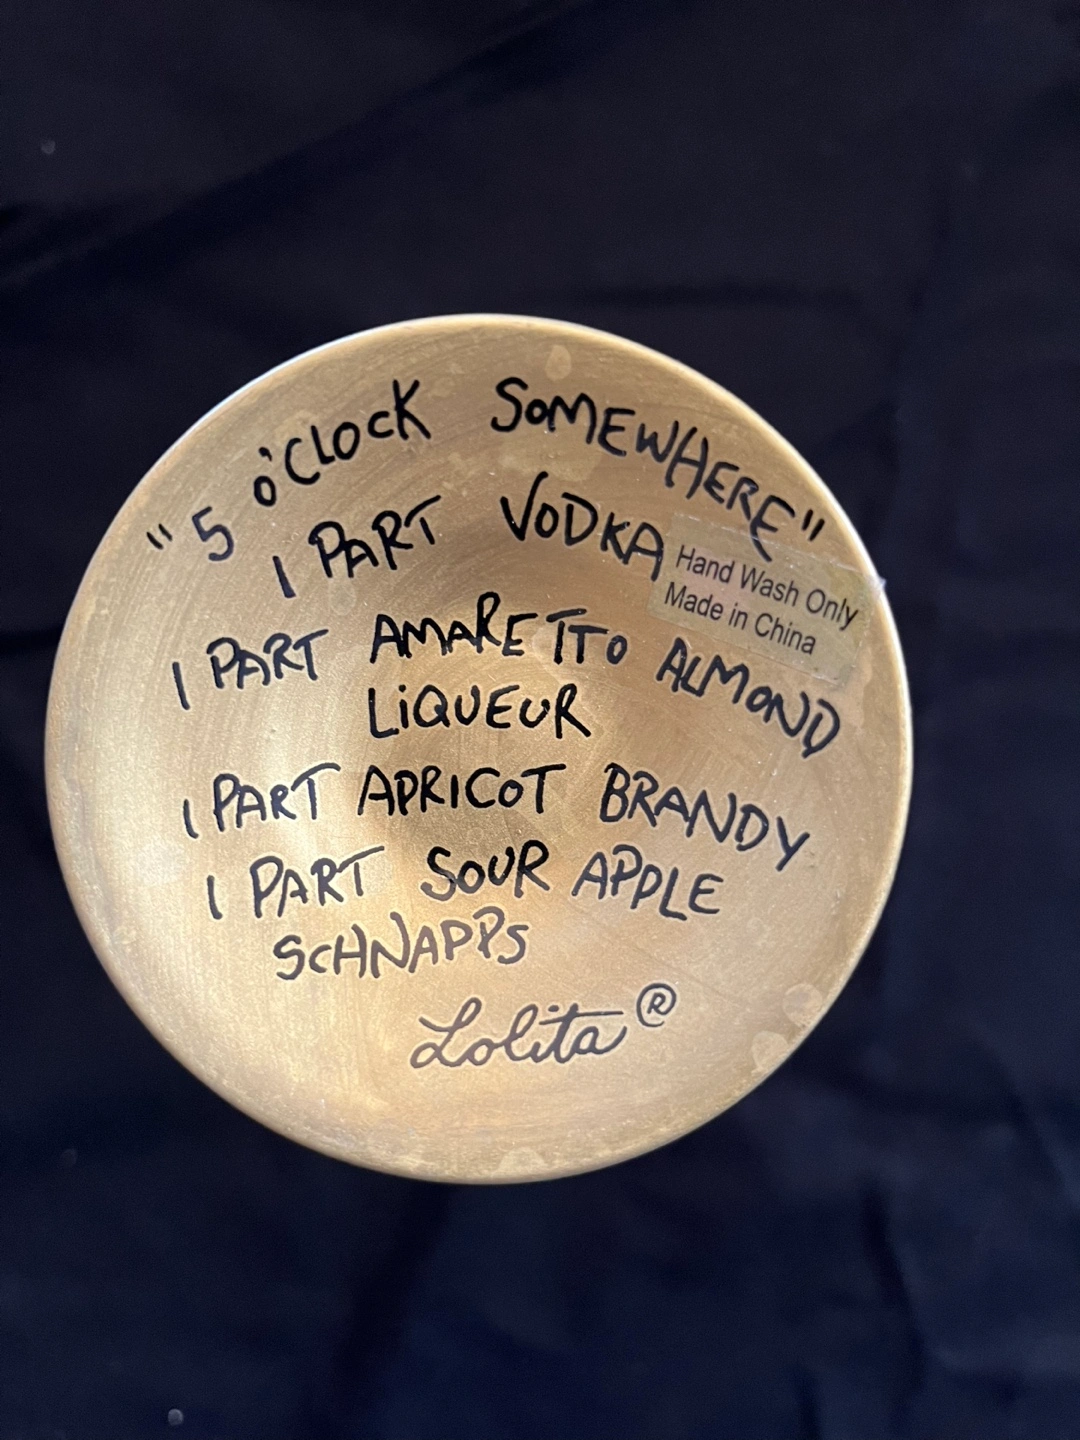 "5 O'CLOCK SOMEWHERE"
1 PART VODKA
Hand Wash Only
Made in China
1 PART AMARETTO ALMOND
LIQUEUR
1 PART APRICOT BRANDY
1 PART SOUR APPLE
SCHNAPPS
Lolita®